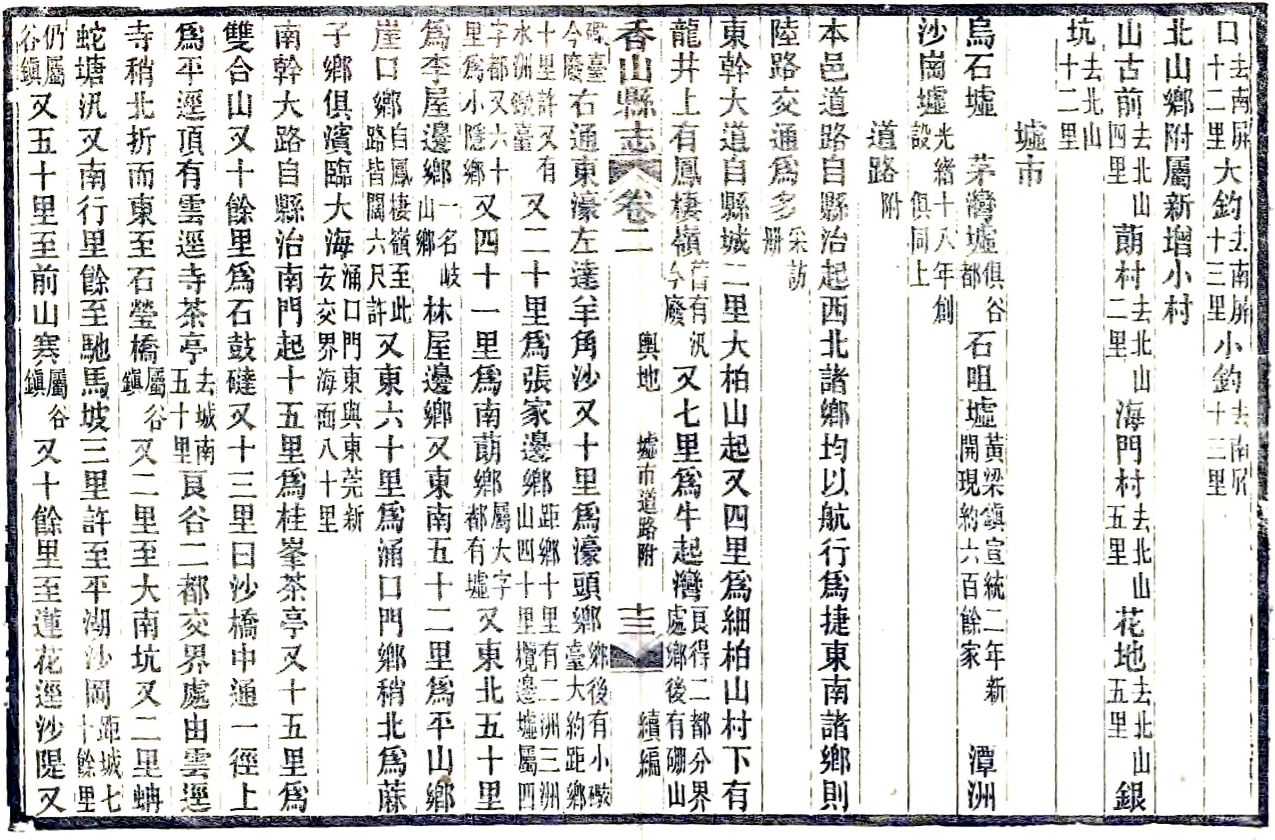 口去南屏十二里大釣去南屏十三里小釣去南屏十三里
北山鄉附屬新增小村
山古前去北山四里萠村去北山二里海門村去北山五里花地去北山五里銀
坑去北山十二里
墟市
烏石墟 茅灣墟俱谷都 石咀墟黃梁鎮宣統二年新開現約六百餘家 潭洲
沙崗墟光緒十八年創設俱同上
道路附
本邑道路自縣治起西北諸鄉均以航行爲捷東南諸鄉則
陸路交通爲多采訪册
東幹大道自縣城一里大柏山起又四里爲細柏山村下有
龍井上有鳳棲嶺舊有汛今廢又七里爲牛起灣艮得二都分界處鄉後有硼山
香山縣志 卷二 輿地 墟市道路附 十三 續編
礮臺今廢右通東濠左達羊角沙又十里爲濠頭鄉鄉後有小礮臺大約距鄉
十里許又有水洲礮臺又二十里爲張家邊鄉距鄉十里有二洲三洲山四十里欖邊墟屬四
字都又六十里爲小隱鄉又四十一里爲南萠鄉屬大字都有墟又東北五十里
爲李屋邊鄉一名岐山鄉林屋邊鄉又東南五十二里爲平山鄉
崖口鄉自鳳棲嶺至此路皆闊六尺許又東六十里爲涌口門鄉稍北爲蔴
子鄉俱濱臨大海涌口門東與東莞新安交界海面八十里
南幹大路自縣治南門起十五里爲桂峯茶亭又十五里爲
雙合山又十餘里爲石鼓磋又十三里曰沙橋中通一徑上
爲平逕頂有雲逕寺茶亭去城南五十里艮谷二都交界處由雲逕
寺稍北折而東至石瑩橋屬谷鎮又二里至大南坑又二里蚺
蛇塘汛又南行里餘至馳馬坡三里許至平湖沙岡距城七十餘里
仍屬谷鎮又五十里至前山寨屬谷鎮又十餘里至蓮花逕沙隄又